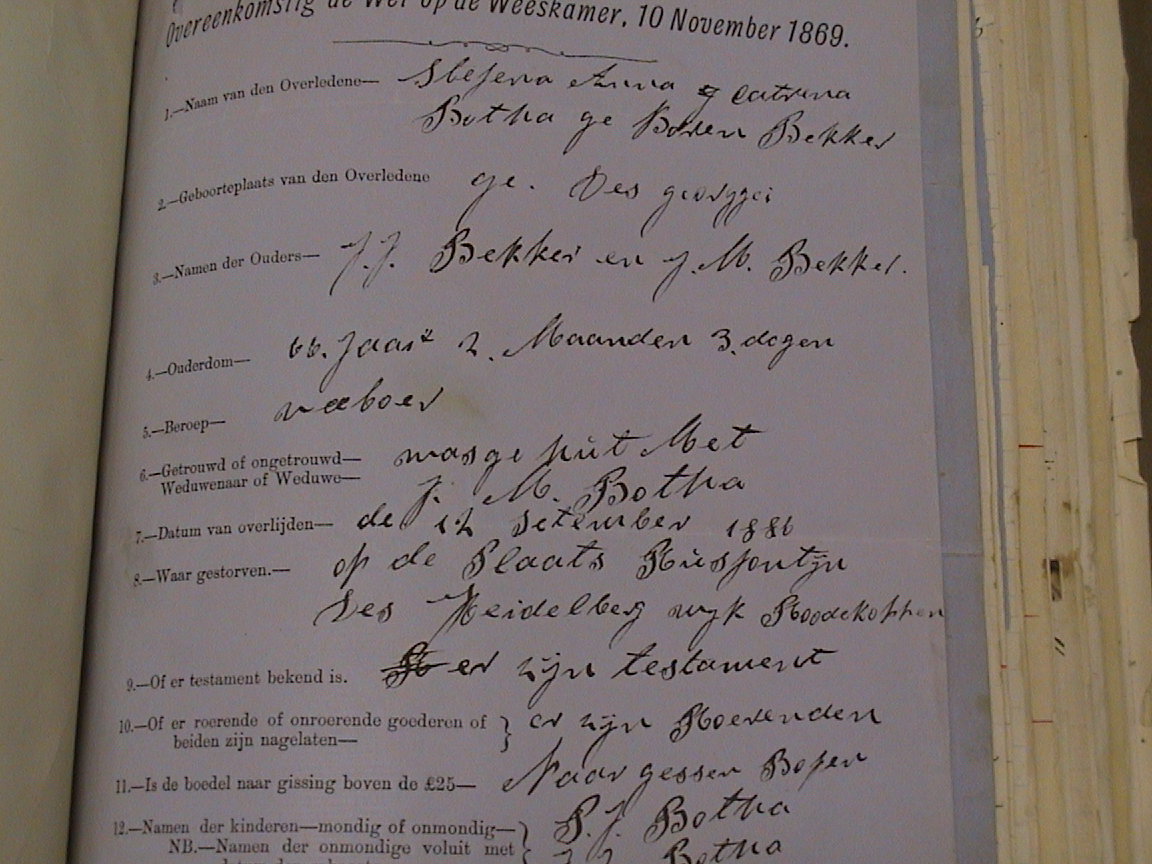 Overeenkomstig de Wet op de Weeskamer, 10 November 1869.
1.—Naam van den Overledene— Anna Catrina
Botha ge Boren Bekker
2.—Geboorteplaats van den Overledene ge. Des
3.—Namen der Ouders— J. J. Bekker en J. M. Bekker.
4.—Ouderdom— 66. Jaar 2. Maanden 3. dagen
5.—Beroep— veeboer
6.—Getrouwd of ongetrouwd— was ge Met
Weduwenaar of Weduwe— J. M. Botha
7.—Datum van overlijden— de 12 Setember 1886
8.—Waar gestorven.— op de Plaats Rusfontijn
Des Heidelberg wyk Roodekoppen
9.—Of er testament bekend is. er zijn testament
10.—Of er roerende of onroerende goederen of } er zijn Roerenden
beiden zijn nagelaten—
11.—Is de boedel naar gissing boven de £25— Naar gessen Bofen
12.—Namen der kinderen—mondig of onmondig— } P. J. Botha
NB.—Namen der onmondige voluit met Botha